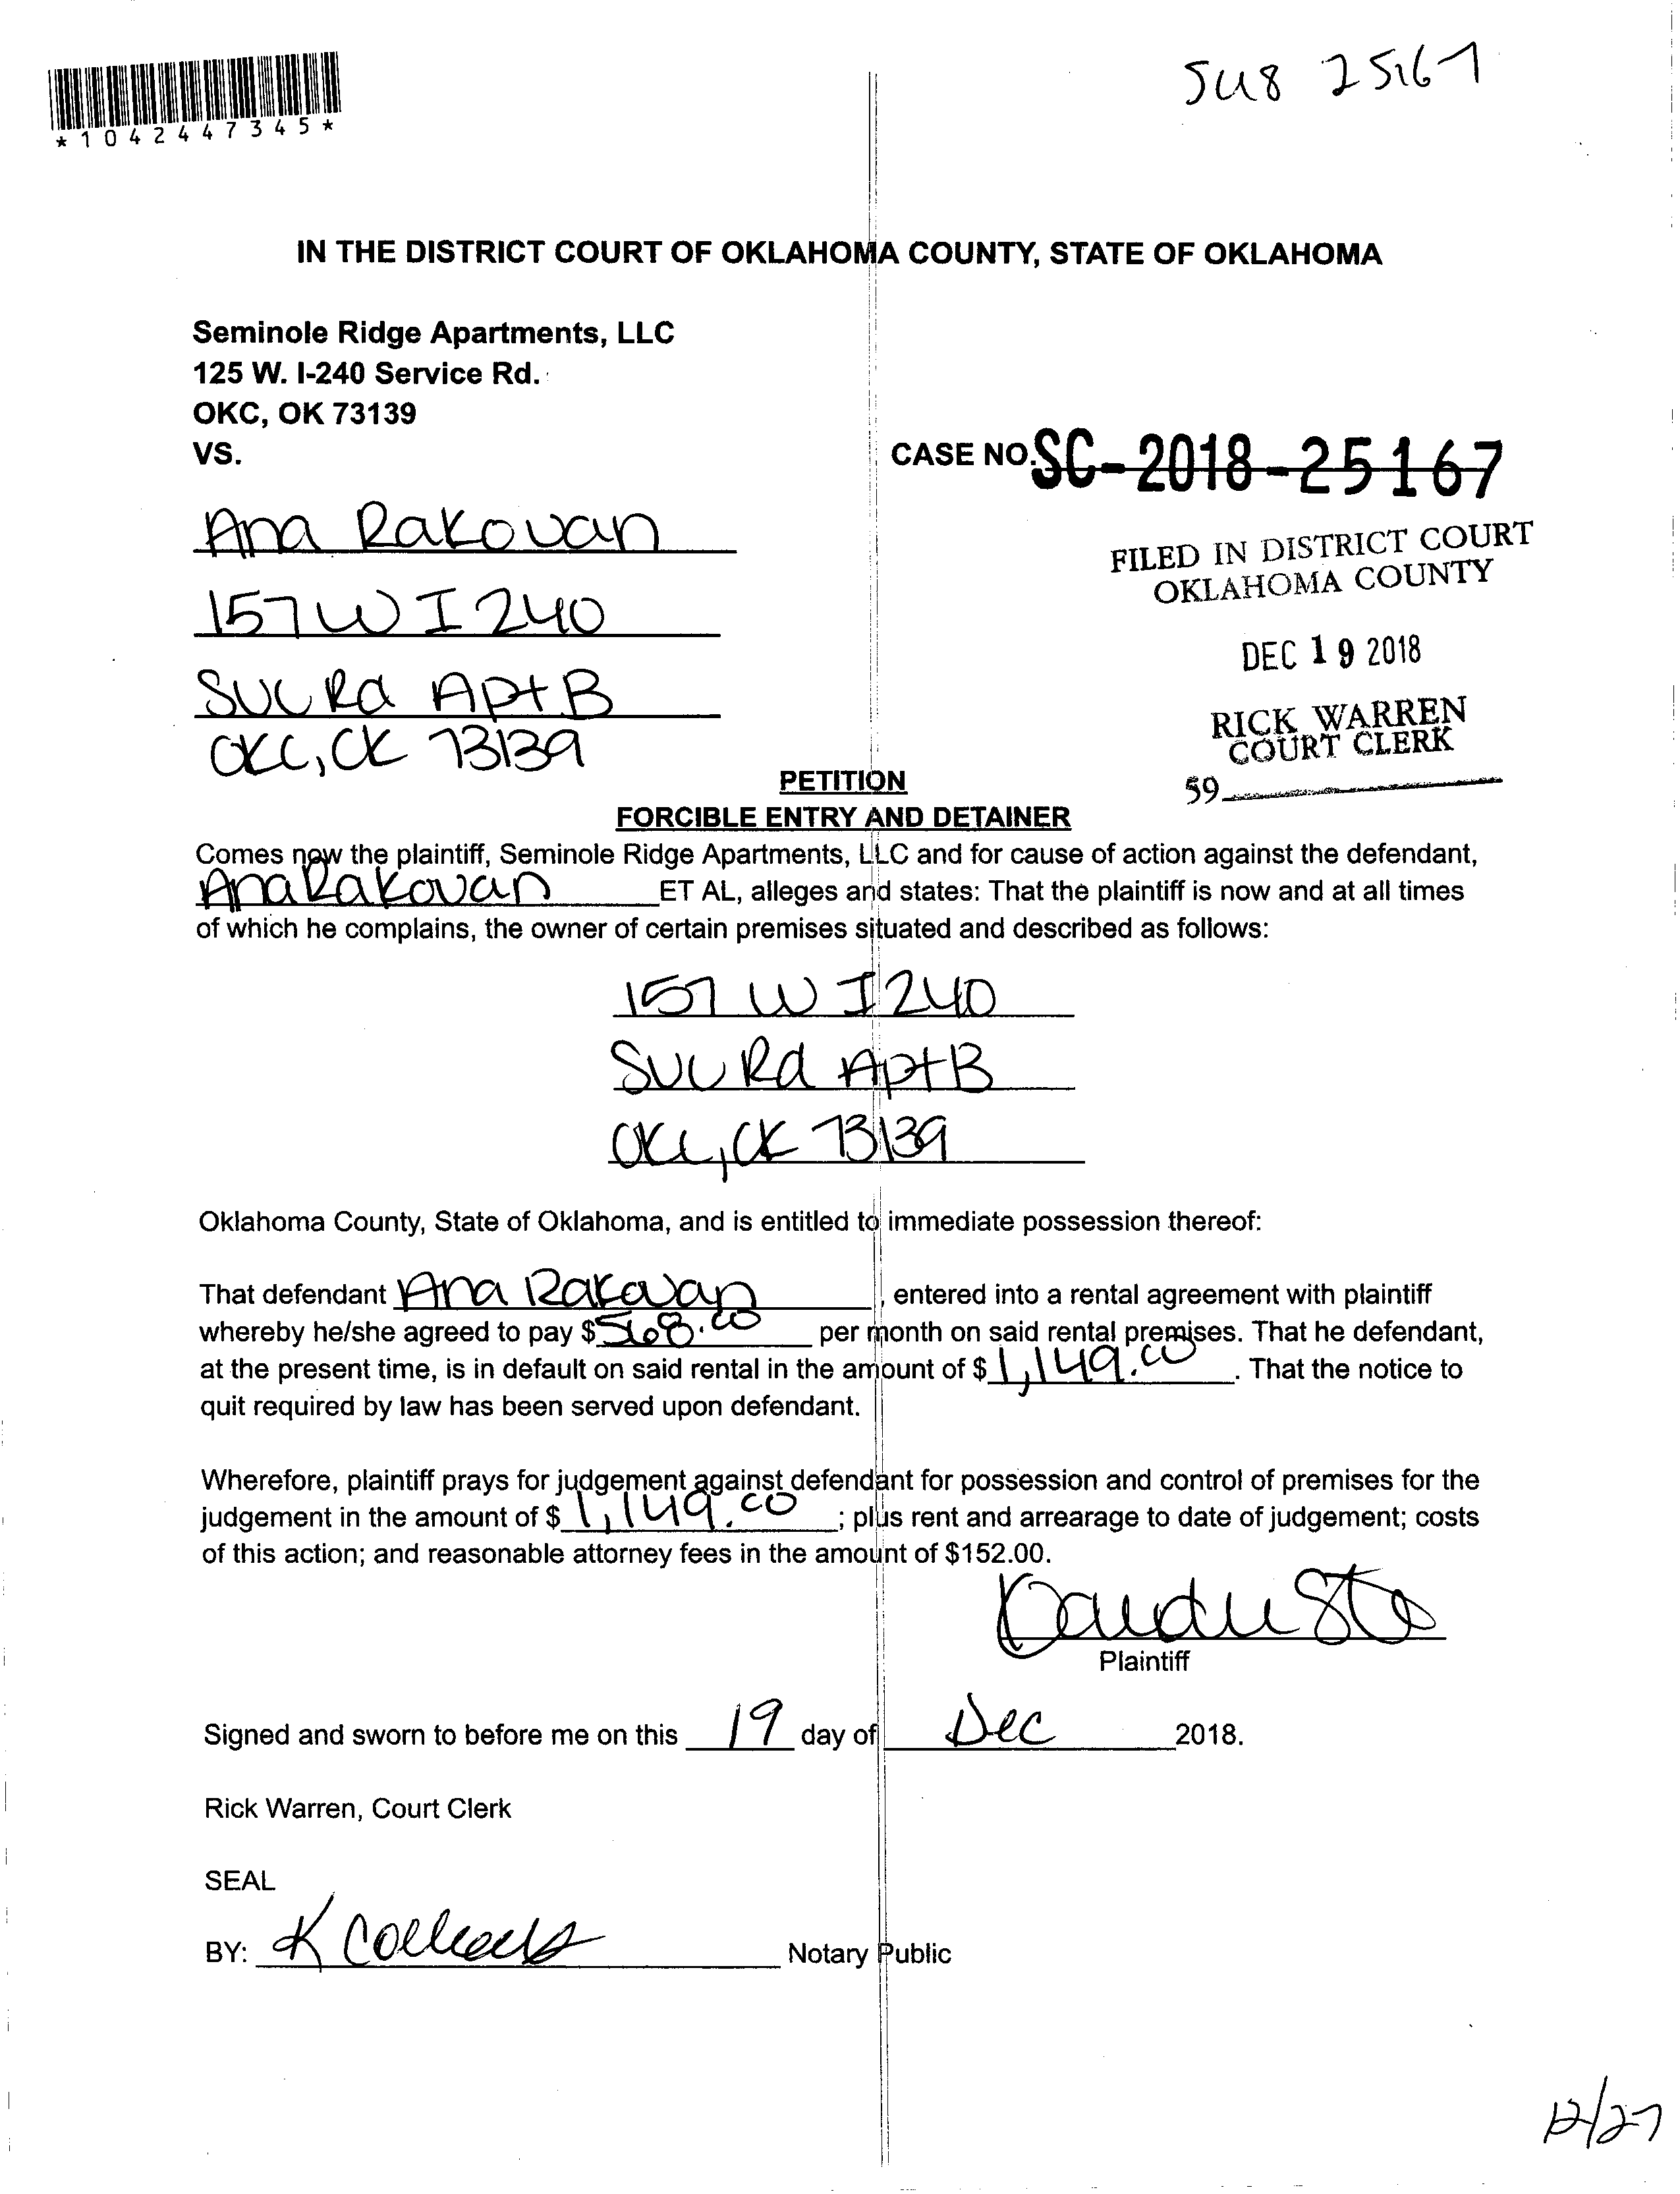 *1042447345*
IN THE DISTRICT COURT OF OKLAHOMA COUNTY, STATE OF OKLAHOMA
Seminole Ridge Apartments, LLC
125 W. I-240 Service Rd.
OKC, OK 73139
VS.
CASE NO. SC-2018-25167
Ana Rakovan
157 W I 240
SVC Rd Apt B
OKC, OK 73139
FILED IN DISTRICT COURT
OKLAHOMA COUNTY
DEC 19 2018
RICK WARREN
COURT CLERK
59
PETITION
FORCIBLE ENTRY AND DETAINER
Comes now the plaintiff, Seminole Ridge Apartments, LLC and for cause of action against the defendant,
Ana Rakovan ET AL, alleges and states: That the plaintiff is now and at all times
of which he complains, the owner of certain premises situated and described as follows:
157 W I 240
SVC Rd Apt B
OKC, OK 73139
Oklahoma County, State of Oklahoma, and is entitled to immediate possession thereof:
That defendant Ana Rakovan, entered into a rental agreement with plaintiff
whereby he/she agreed to pay $568.00 per month on said rental premises. That he defendant,
at the present time, is in default on said rental in the amount of $1,149.00. That the notice to
quit required by law has been served upon defendant.
Wherefore, plaintiff prays for judgement against defendant for possession and control of premises for the
judgement in the amount of $1,149.00; plus rent and arrearage to date of judgement; costs
of this action; and reasonable attorney fees in the amount of $152.00.
Plaintiff
Signed and sworn to before me on this 19 day of Dec 2018.
Rick Warren, Court Clerk
SEAL
BY: K Notary Public
12/27